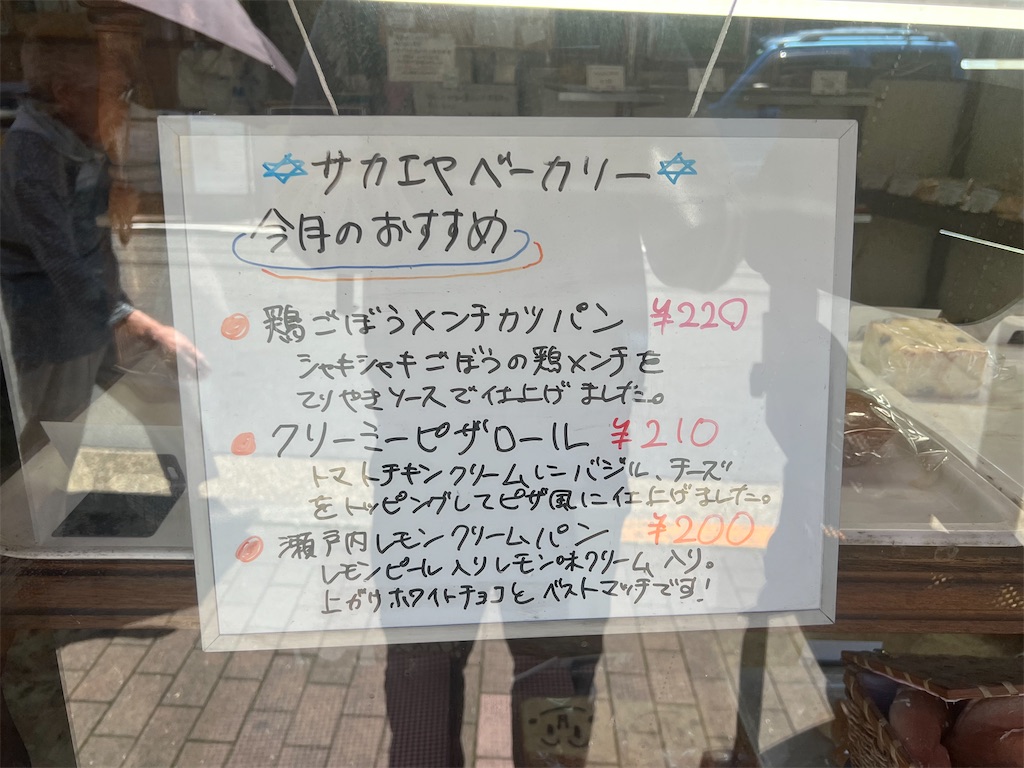 サカエヤベーカリー
今月のおすすめ
鶏ごぼうメンチカツパン ¥220
シャキシャキごぼうの鶏メンチを
てりやきソースで仕上げました。
クリーミーピザロール ¥210
トマトチキンクリームにバジル、チーズ
をトッピングしてピザ風に仕上げました。
瀬戸内レモンクリームパン ¥200
レモンピール入りレモン味クリーム入り。
上がけホワイトチョコとベストマッチです!